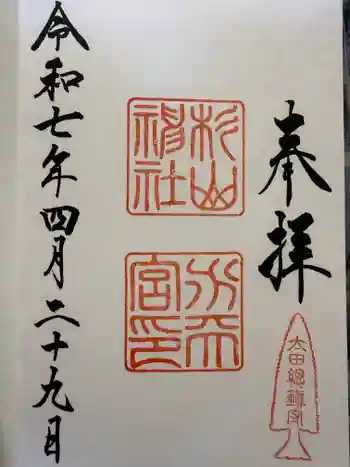 奉拝
太田總鎮守
杉山
神社
宮印
令和七年四月二十九日